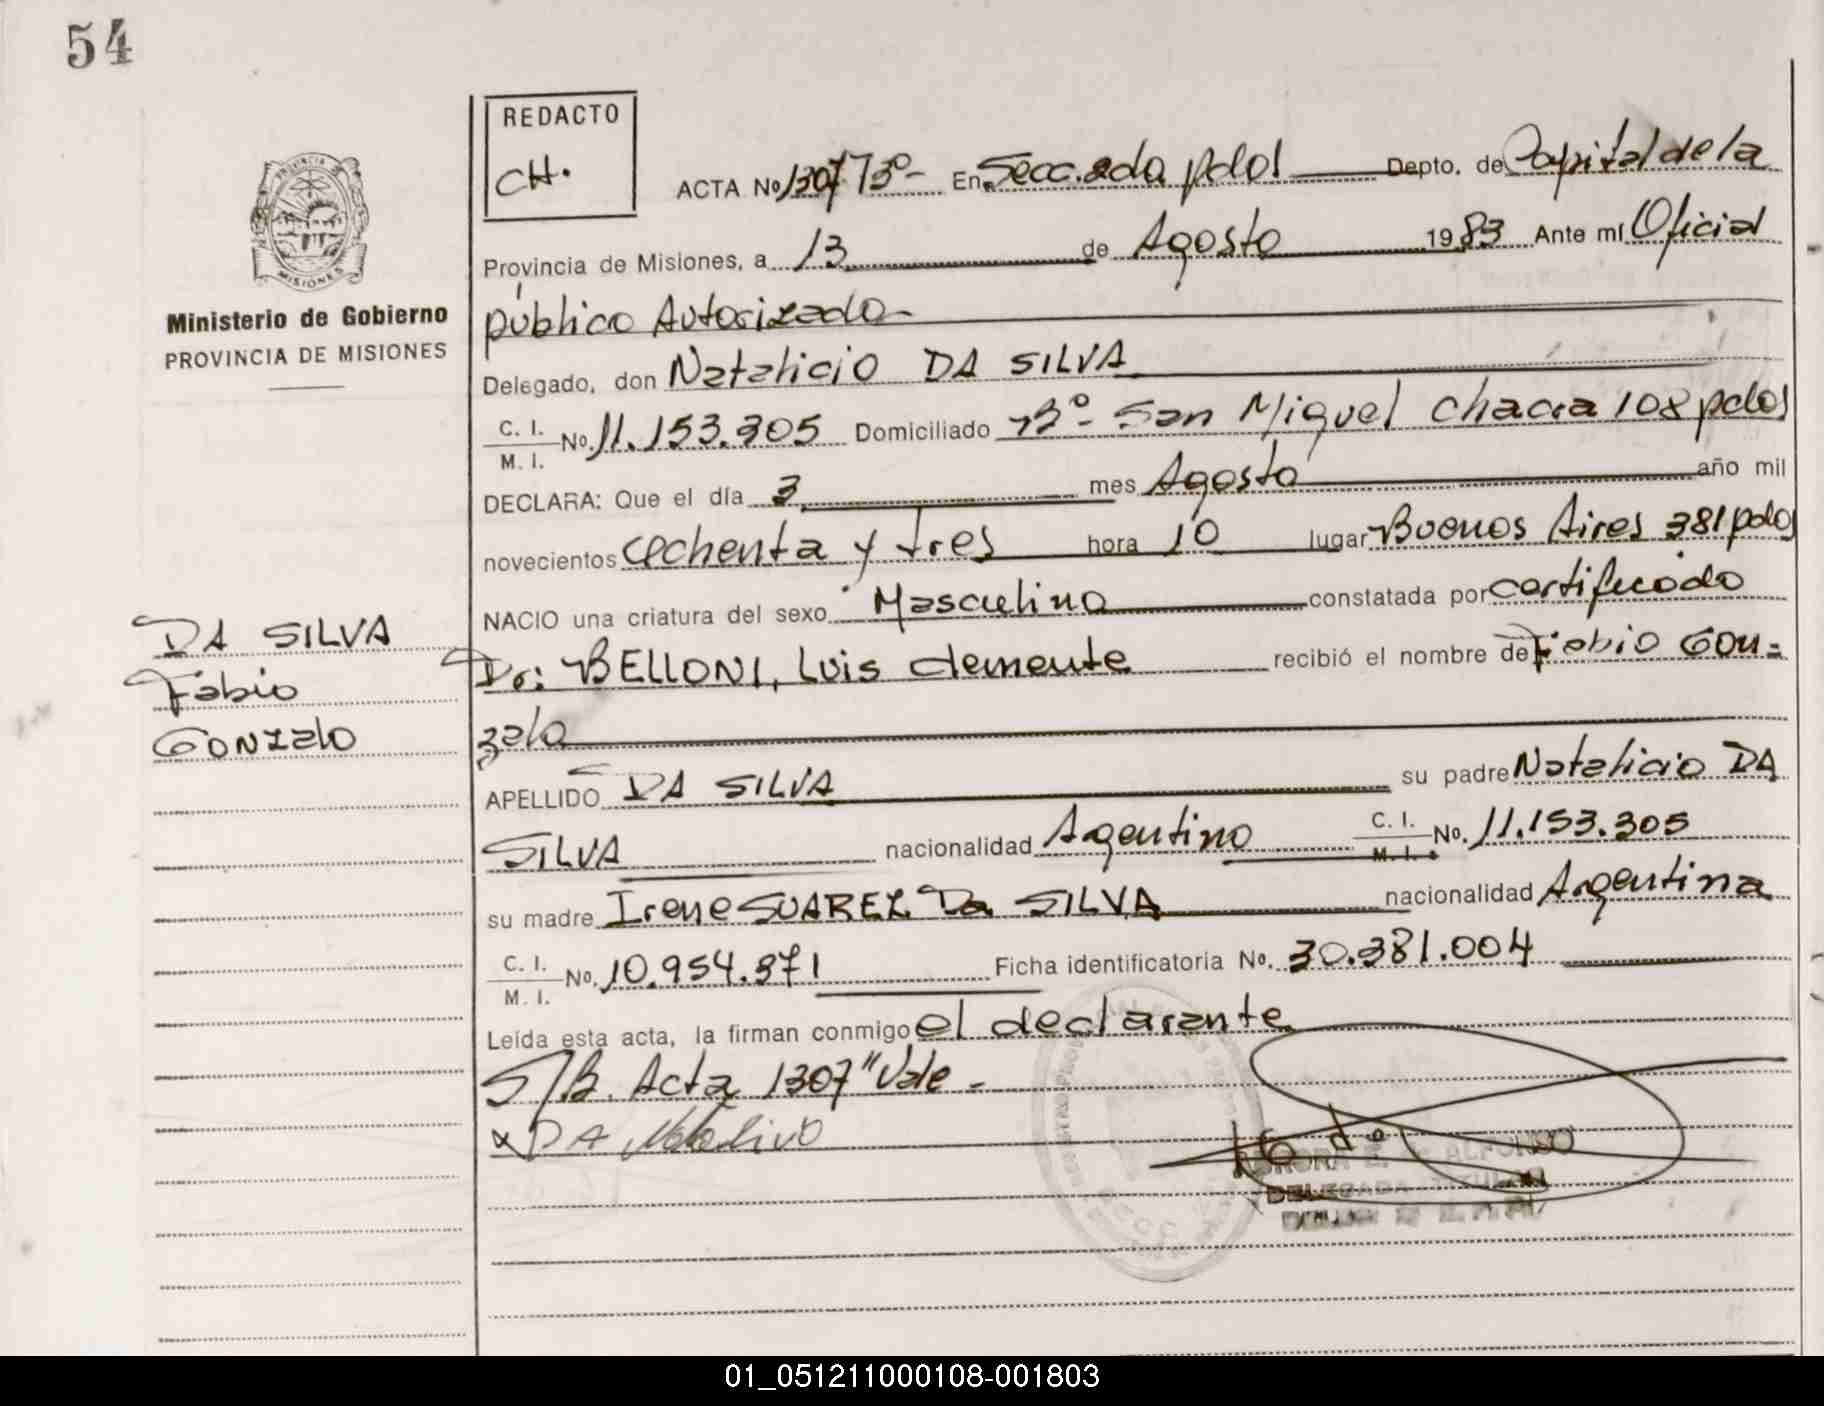 54
REDACTO
CH.
PROVINCIA
MISIONES
Ministerio de Gobierno
PROVINCIA DE MISIONES
ACTA No 1307 Tº- En Secc. 2da pdas Depto. de Capital de la
Provincia de Misiones, a 13 de Agosto 1983 Ante mí Oficial
público Autorizado-
Delegado, don Natalicio DA SILVA
C. I. M. I. No. 11.153.305 Domiciliado Bº- San Miguel chacra 108 pdas
DECLARA: Que el día 3 mes Agosto año mil
novecientos Ochenta y tres hora 10 lugar Buenos Aires 381 pdas
NACIO una criatura del sexo Masculino constatada por certificado
Dr: BELLONI, Luis Clemente recibió el nombre de Fabio Gon=
zalo
APELLIDO DA SILVA su padre Natalicio DA
SILVA nacionalidad Argentino C. I. M. I. No. 11.153.305
su madre Irene SUAREZ Da SILVA nacionalidad Argentina
C. I. M. I. No. 10.954.371 Ficha identificatoria No. 30.381.004
Leída esta acta, la firman conmigo el declarante
S/B. Acta 1307" Vale-
x DA
ALFONSO
DELEGADA TITULAR
DA SILVA
Fabio
Gonzalo
01_051211000108-001803